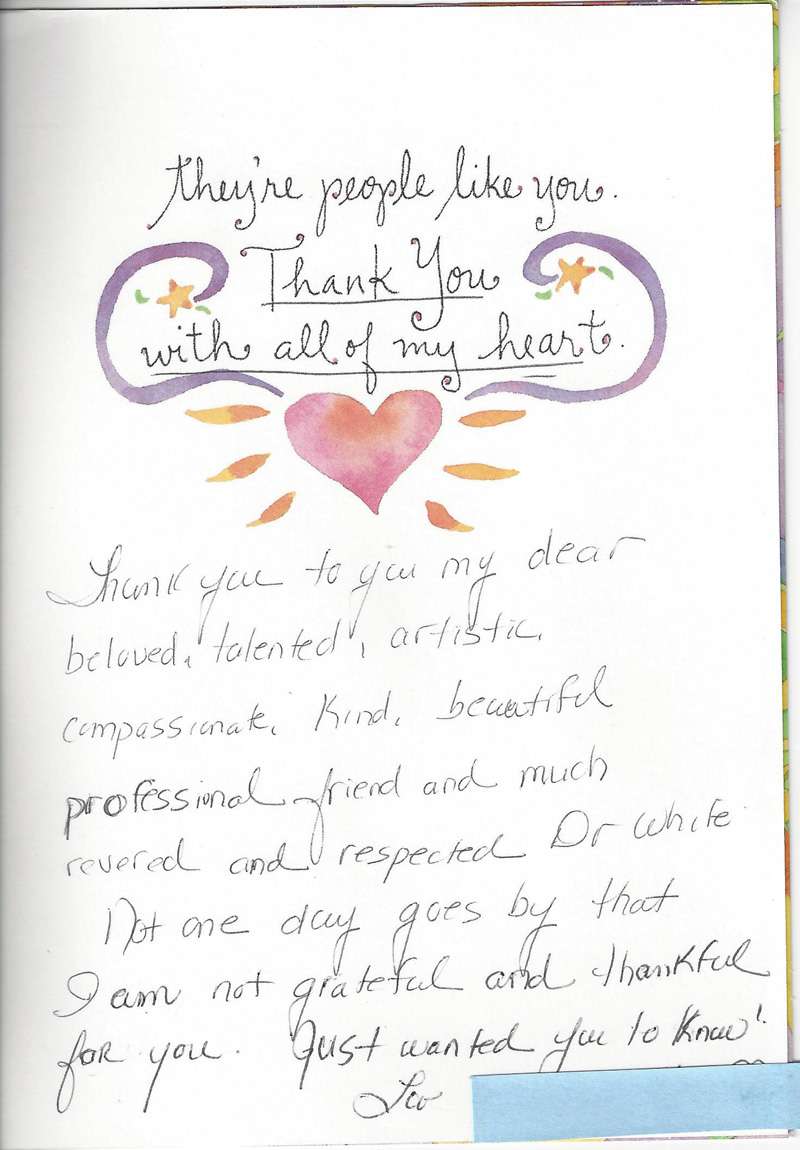 they're people like you.
Thank You
with all of my heart.
Thank you to you my dear
beloved, talented, artistic,
compassionate, kind, beautiful
professional friend and much
revered and respected Dr White
Not one day goes by that
I am not grateful and thankful
for you. Just wanted you to know!